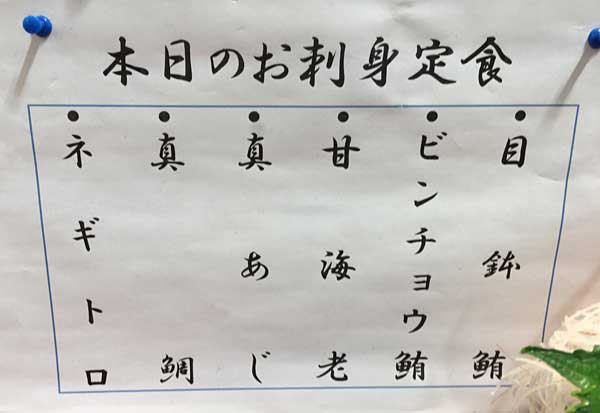 本日のお刺身定食
•目鉢鮪
•ビンチョウ鮪
•甘海老
•真あじ
•真鯛
•ネギトロ